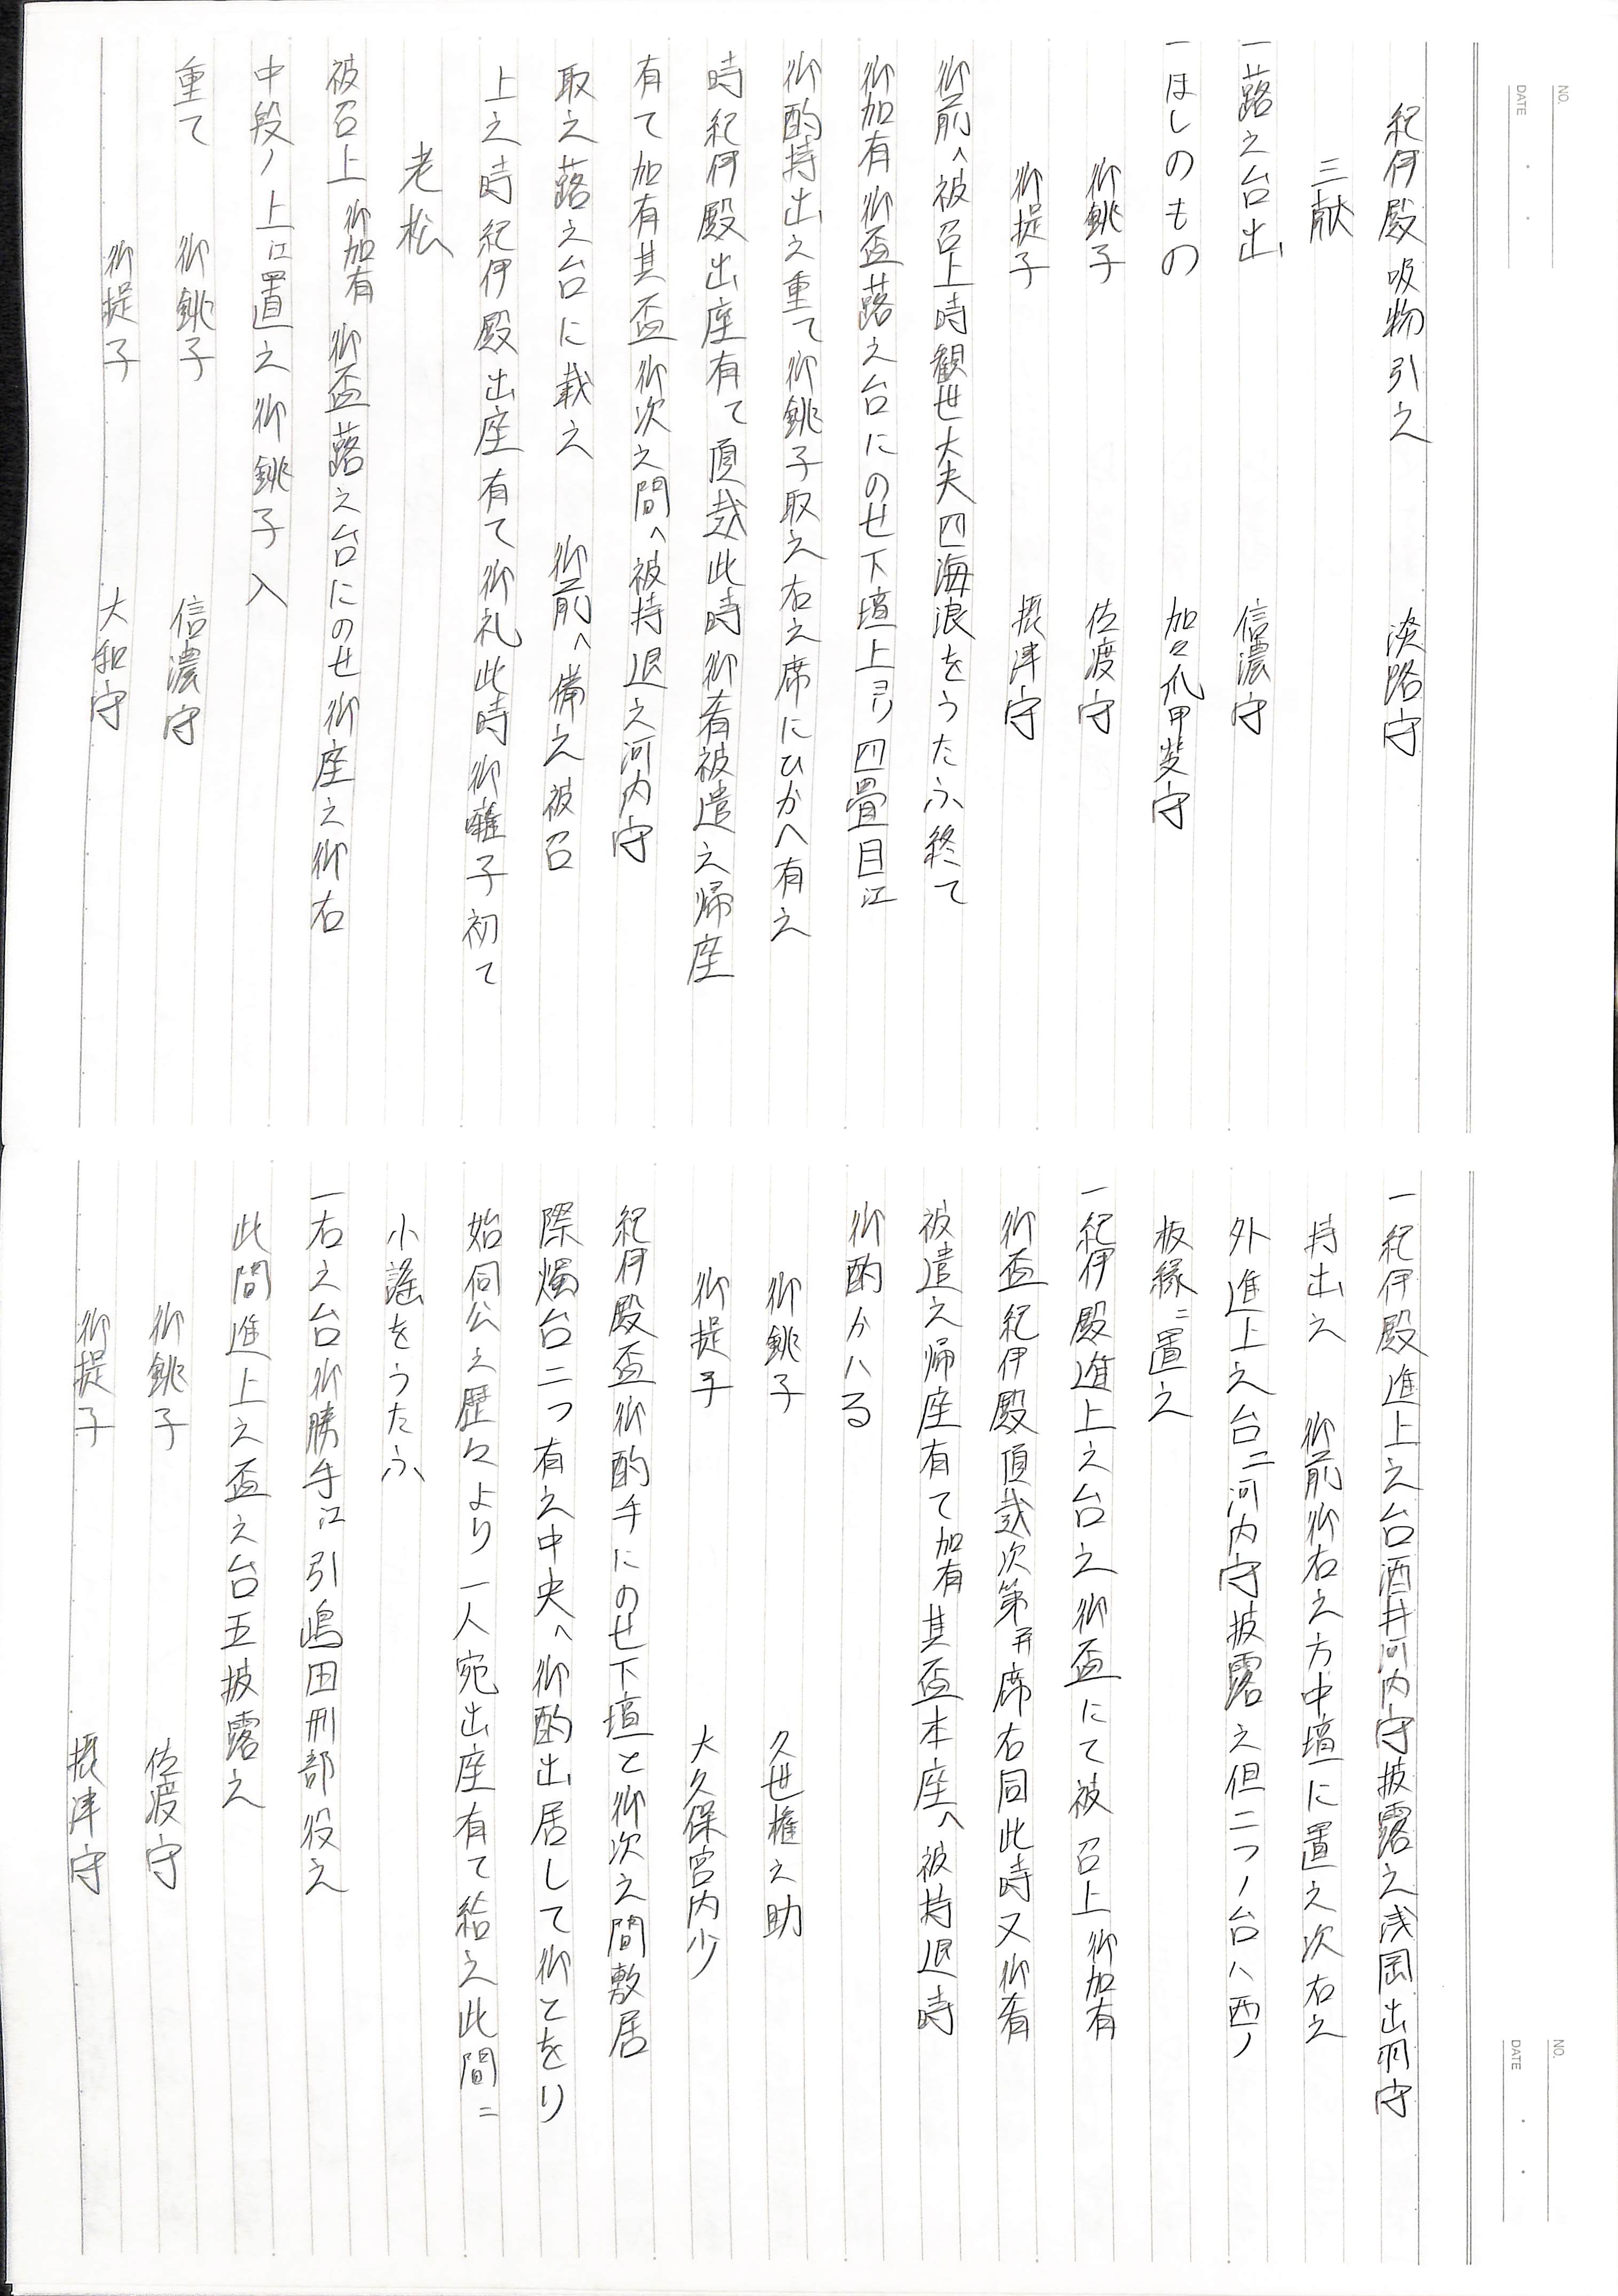 NO.
DATE
紀伊殿吸物引之　淡路守
三献
一蕗之台出　信濃守
一ほしのもの　加々爪甲斐守
御銚子　佐渡守
御提子　摂津守
御前へ被召上時観世大夫四海浪をうたふ終て
御加有御盃蕗之台にのせ下壇上ヨリ四畳目江
御酌持出之重て御銚子取之右之席にひかへ有之
時紀伊殿出座有て頂戴此時御肴被遣之帰座
有て加有其盃御次之間へ被持退之河内守
取之蕗之台に載之　御前へ備之被召
上之時紀伊殿出座有て御礼此時御囃子初て
老松
被召上御加有御盃蕗之台にのせ御座之御右
中段ノ上江置之御銚子入
重て　御銚子　信濃守
御提子　大和守
NO.
DATE
一紀伊殿進上之台酒井河内守披露之浅岡出羽守
持出之　御前御右之方中壇に置之次右之
外進上之台二河内守披露之但二つノ台ハ西ノ
板縁ニ置之
一紀伊殿進上之台之御盃にて被召上御加有
御盃紀伊殿頂戴次第并席右同此時又御肴
被遣之帰座有て加有其盃本座へ被持退時
御酌かハる
御銚子　久世権之助
御提子　大久保宮内少
紀伊殿盃御酌手にのせ下壇と御次之間敷居
際燭台二つ有之中央へ御酌出居して御とをり
始伺公之歴々より一人宛出座有て給之此間ニ
小謡をうたふ
一右之台御勝手江引嶋田刑部役之
此間進上之盃之台五披露之
御銚子　佐渡守
御提子　摂津守